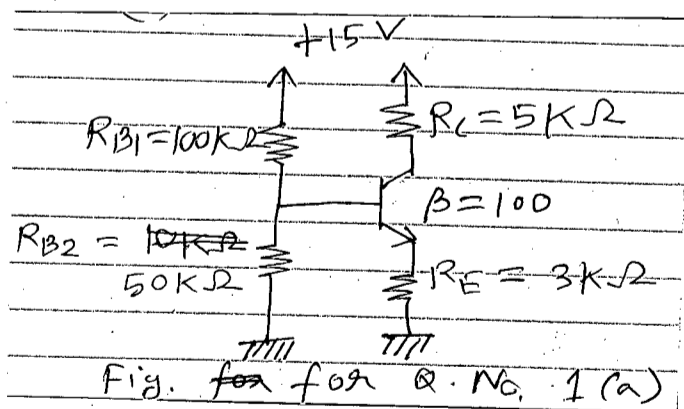 +15 V
RB1=100KΩ
RC=5KΩ
β=100
RB2 = 10KΩ
50KΩ
RE = 3KΩ
Fig. for for Q. No. 1 (a)